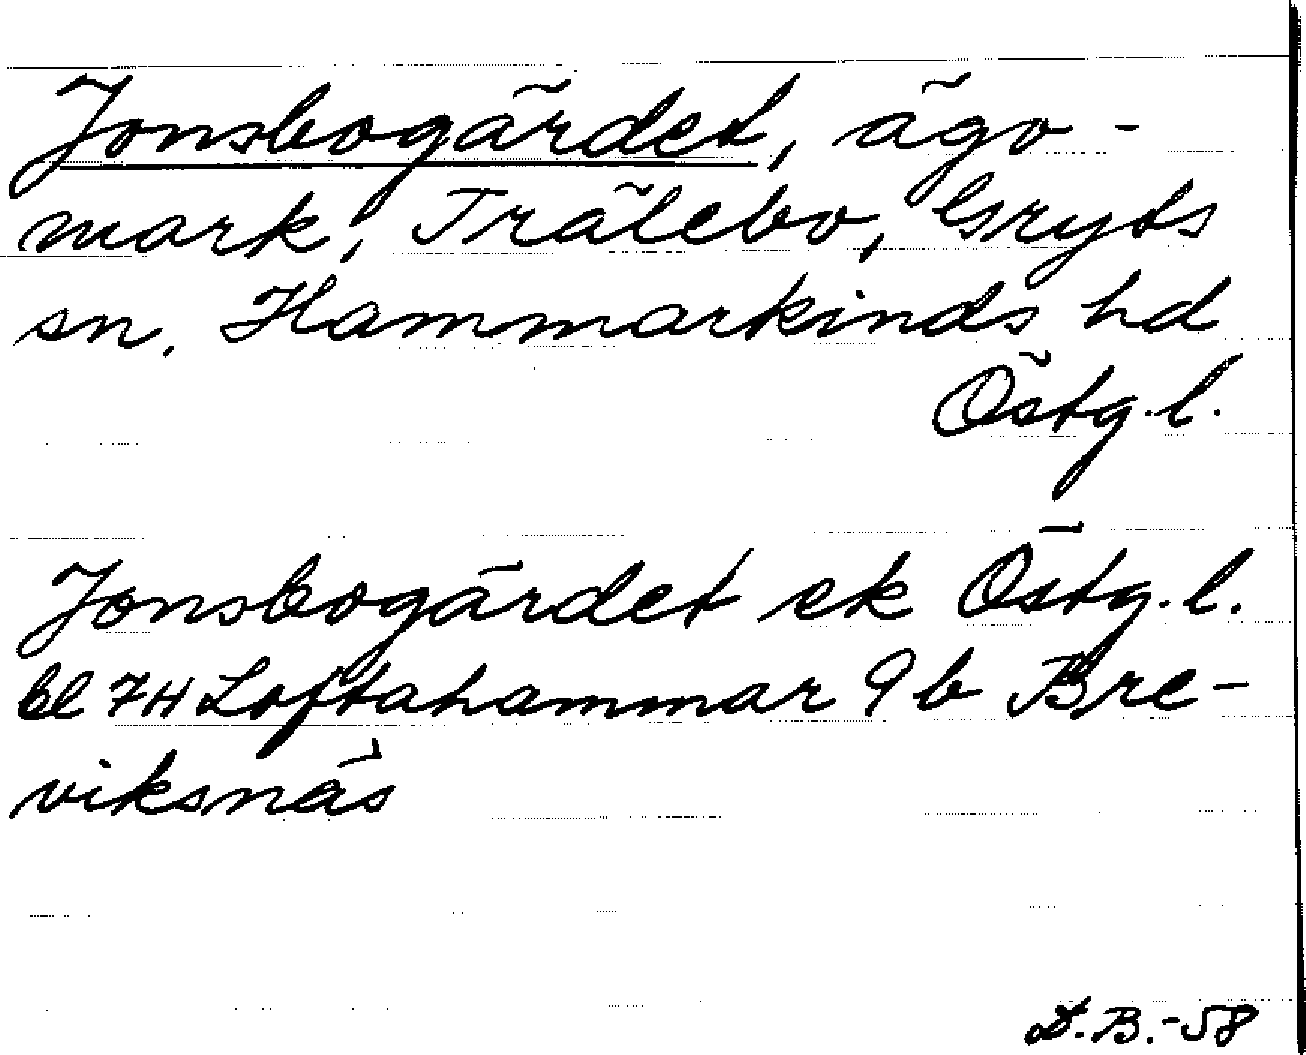 Jonsbogärdet, ägo-
mark, Trälebo, Gryts
sn. Hammarkinds hd
Östg.l.
Jonsbogärdet ek Östg.l.
bl 7H Loftahammar 9b Bre-
viksnäs
D.B.-58